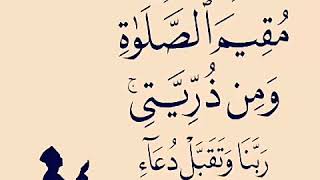 مُقِيمَ ٱلصَّلَوٰةِ
وَمِن ذُرِّيَّتِى ۚ
رَبَّنَا وَتَقَبَّلْ دُعَآءِ